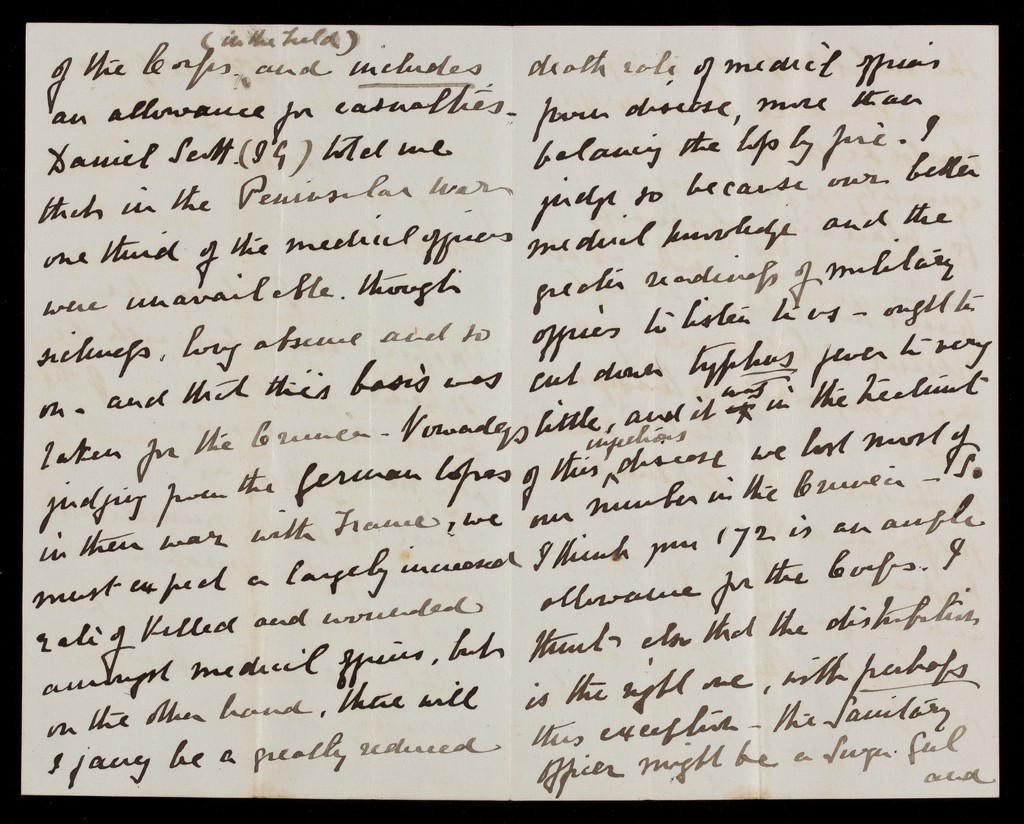 (in the field)
of the Corps. and includes
an allowance for casualties-
Daniel Scott (IG) told me
that in the Peninsular War
one third of the medical officers
were unavailable. through
sickness, long absence and so
on. and that this basis was
taken for the Crimea - Nowadays
judging from the German losses
in their war with France, we
must expect a largely increased
rate of killed and wounded
amongst medical officers, but
on the other hand, there will
I fancy be a greatly reduced
death rate of medical officers
from disease, more than
balancing the loss by fire. I
judge so because our better
medical knowledge and the
greater readiness of military
officers to listen to us - ought to
cut down typhus fever to very
little, and it was in the treatment
of this infectious disease we lost most of
our number in the Crimea - So
I think your 172 is an ample
allowance for the Corps. I
think also that the distribution
is the right one, with perhaps
this exception - the Sanitary
Officer might be a Surgn. Genl
and